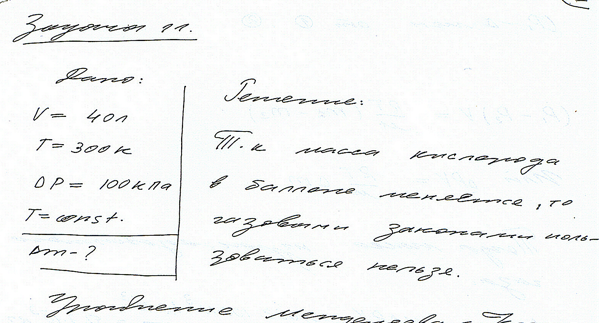 Задача 11.
Дано:
V = 40л
T = 300к
DP = 100кпа
T = const.
Dm - ?
Решение:
Т.к масса кислорода
в баллоне меняется, то
газовыми законами поль-
зоваться нельзя.
Уравнение Менделеева -